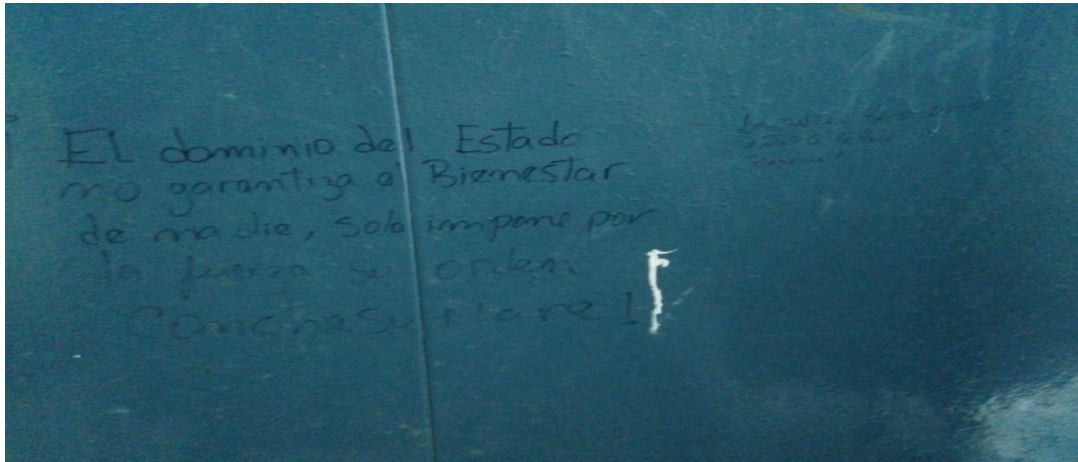 El dominio del Estado
no garantiza el Bienestar
de nadie, solo impone por
la fuerza su orden
Conchesu Mare!